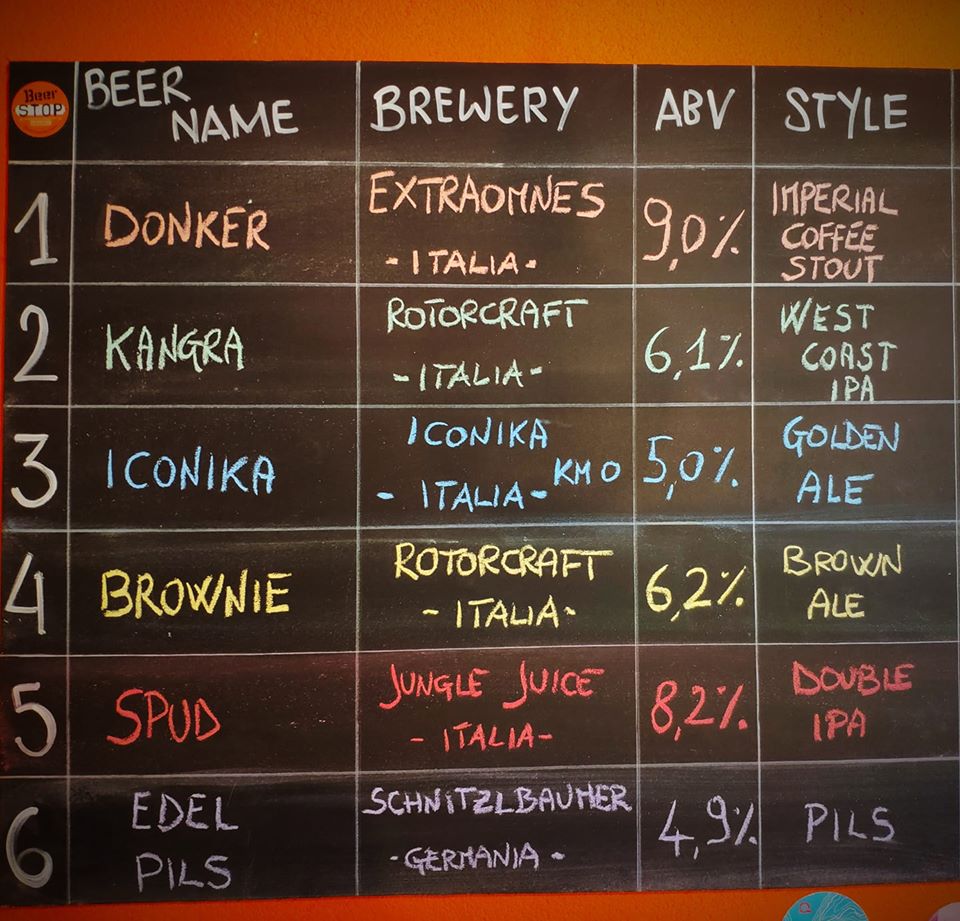 Beer
STOP
BEER
NAME
BREWERY
ABV
STYLE
1
DONKER
EXTRAOMNES
- ITALIA -
9,0%
IMPERIAL
COFFEE
STOUT
2
KANGRA
ROTORCRAFT
- ITALIA -
6,1%
WEST
COAST
IPA
3
ICONIKA
ICONIKA
- ITALIA - KM 0
5,0%
GOLDEN
ALE
4
BROWNIE
ROTORCRAFT
- ITALIA -
6,2%
BROWN
ALE
5
SPUD
JUNGLE JUICE
- ITALIA -
8,2%
DOUBLE
IPA
6
EDEL
PILS
SCHNITZLBAUMER
- GERMANIA -
4,9%
PILS